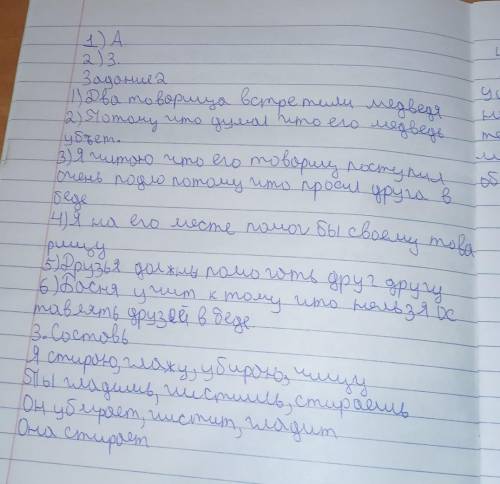 1) А
2) 3.
Задание 2
1) Два товарища встретили медведя
2) Потому что думал что его медведь
убьет.
3) Я читаю что его товарищ поступил
очень подло потому что просил друга в
беде
4) Я на его месте помог бы своему това
рищу
5) Друзья должны помогать друг другу
6) Басня учит к тому что нельзя ос
тавлять друзей в беде
3. Составь
Я стираю, глажу, убираю, чищу
Ты гладишь, чистишь, стираешь
Он убирает, чистит, гладит
Она стирает